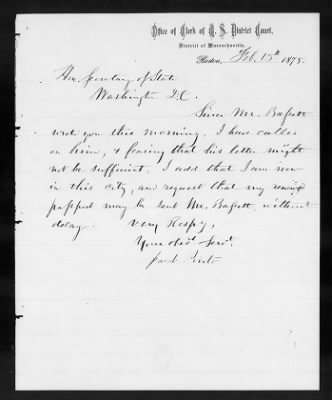 Office of Clerk of U. S. District Court,
District of Massachusetts.
Boston, Feb. 15th 1878.
Hon. Secretary of State
Washington D.C.
Since Mr. Bassett
wrote you this morning, I have called
on him, & fearing that his letter might
not be sufficient, I add that I am now
in this city, and request that my
passport may be sent Mr. Bassett, without
delay. Very Respy,
Your obdt. Servt.
Jacob